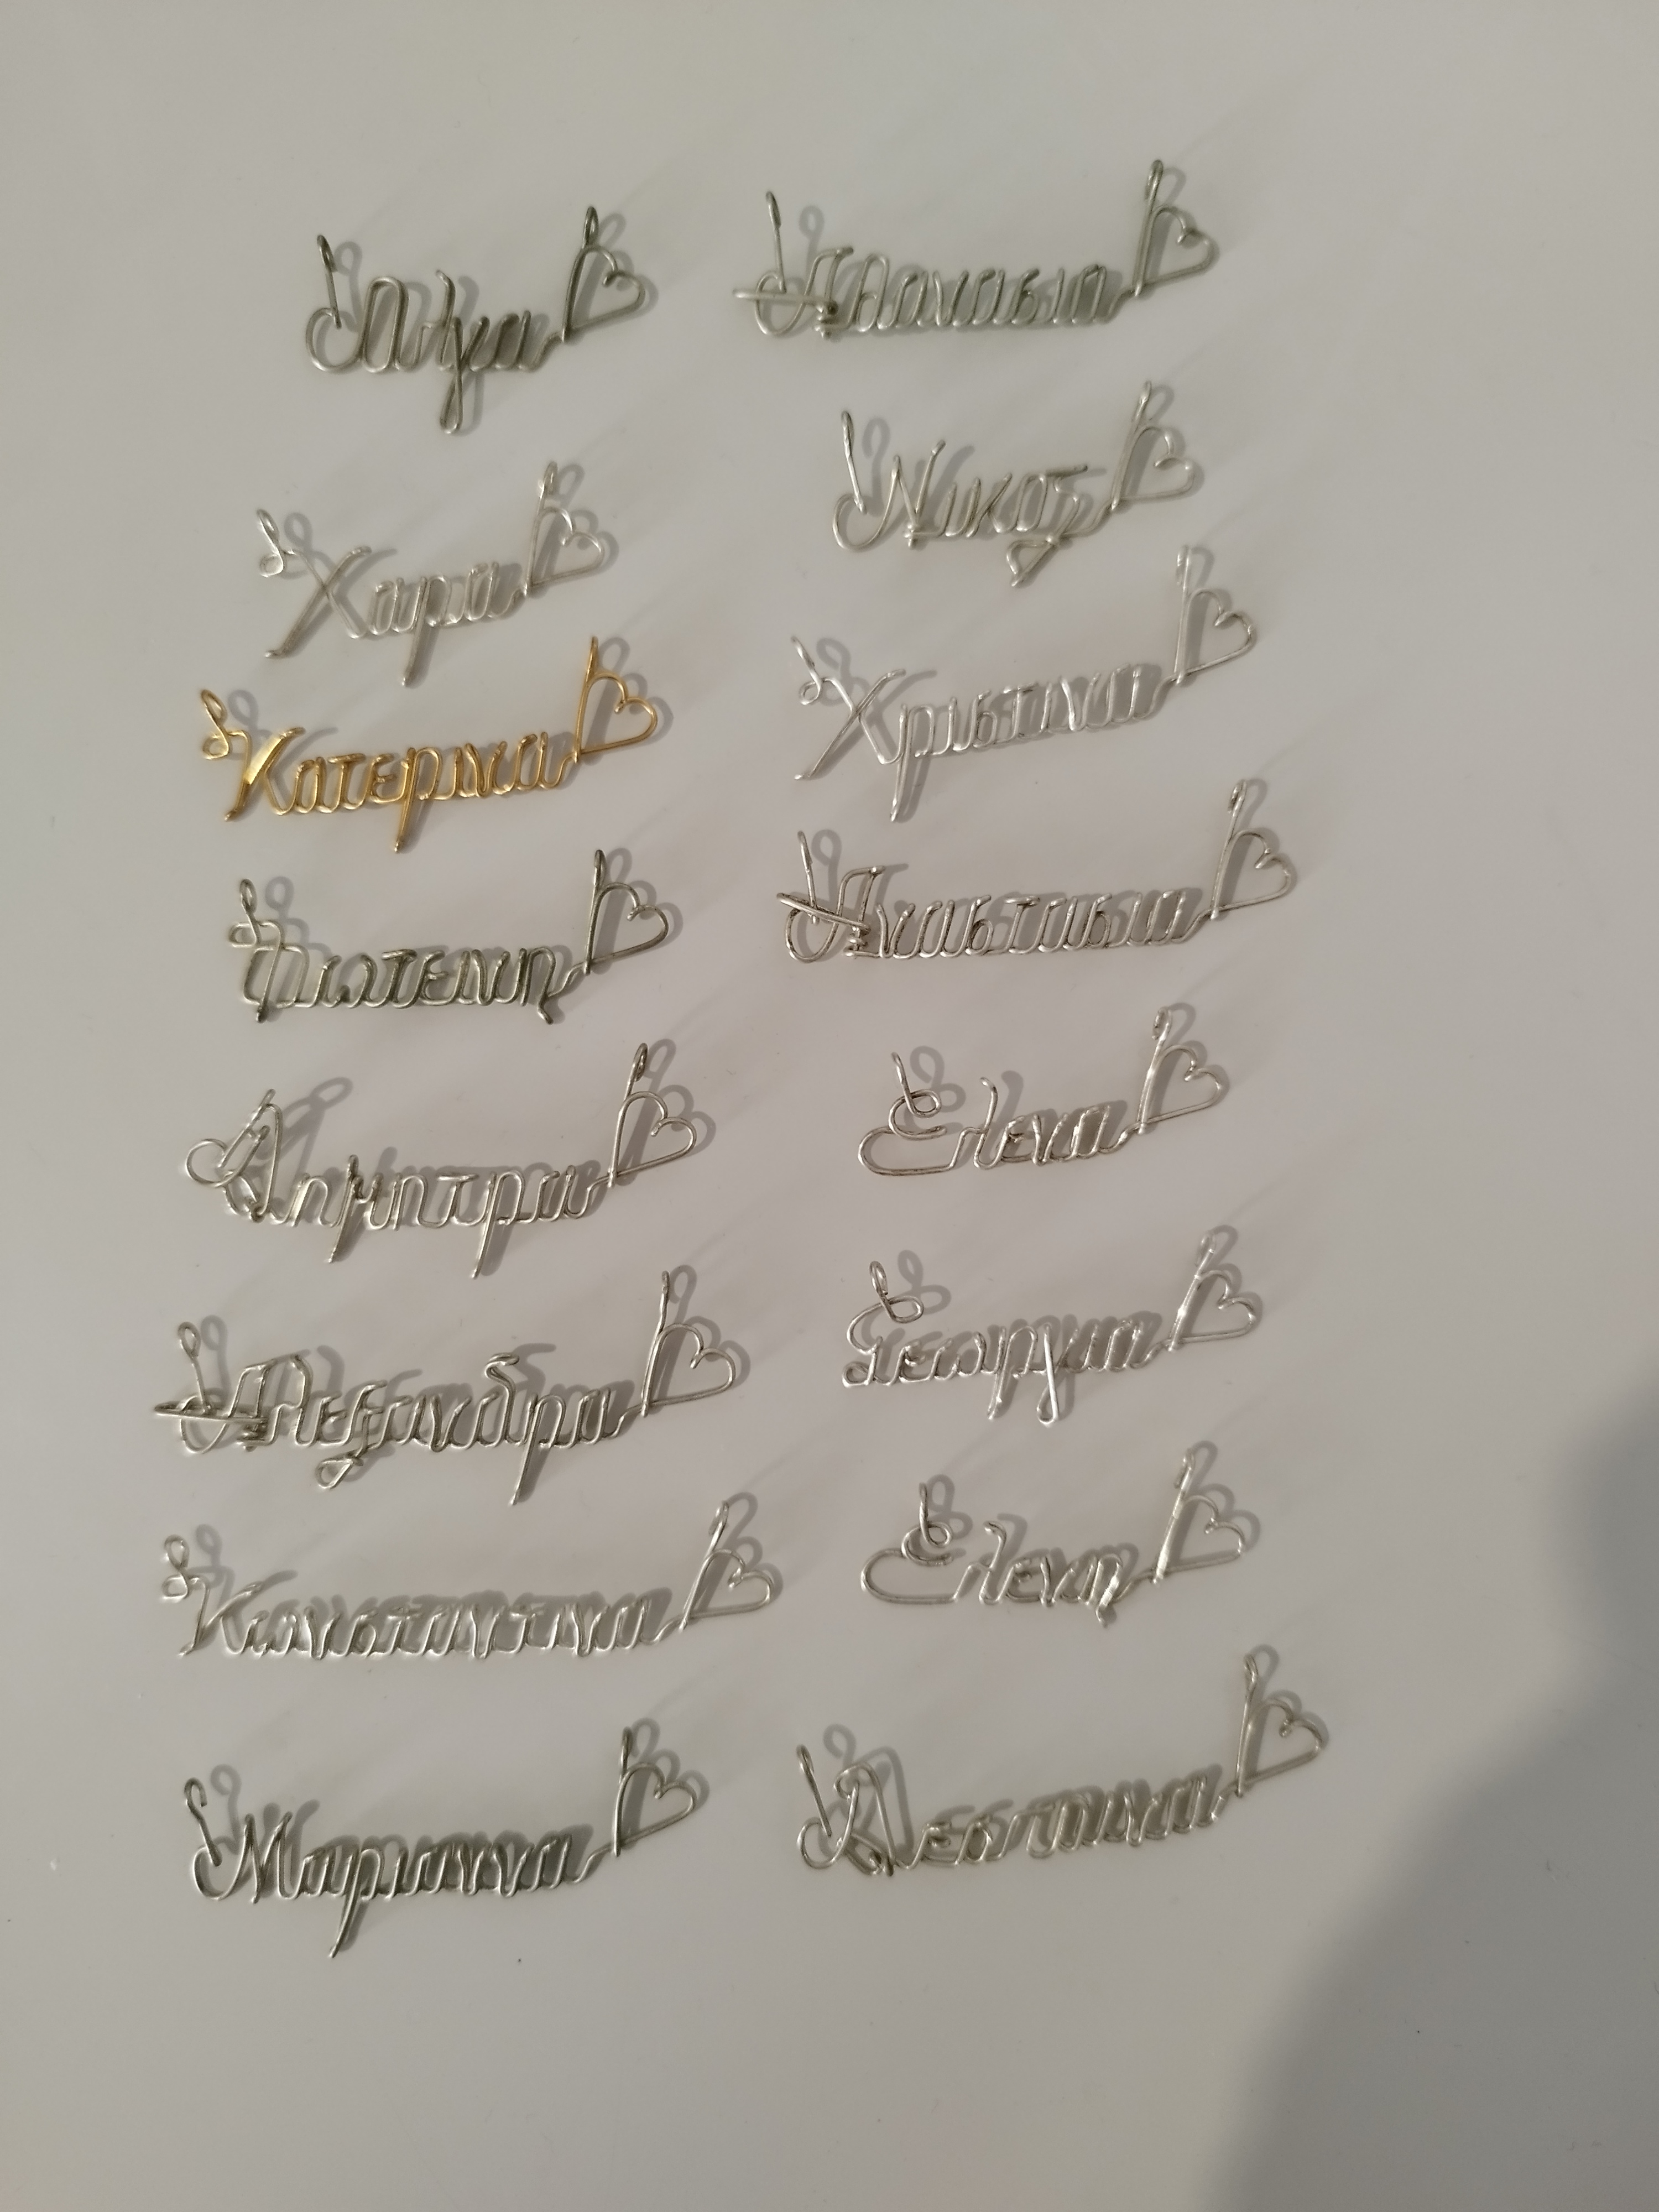 Χαρα
Κατερινα
Φωτεινη
Δημητρα
Αλεξανδρα
Κωνσταντινα
Μαριαννα
Αθανασια
Νικος
Χριστινα
Αναστασια
Ελενα
Γεωργια
Ελενη
Δεσποινα